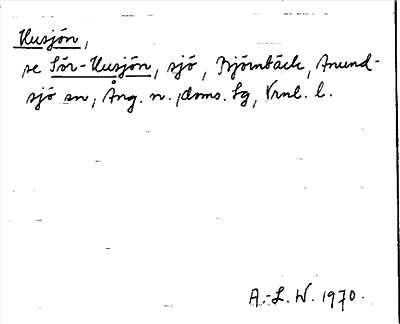 Husjön,
se Sör-Husjön, sjö, Björnbäck, Anund-
sjö sn, Ång. n. doms. lg, Vrnl. l.
A.-L. W. 1970.